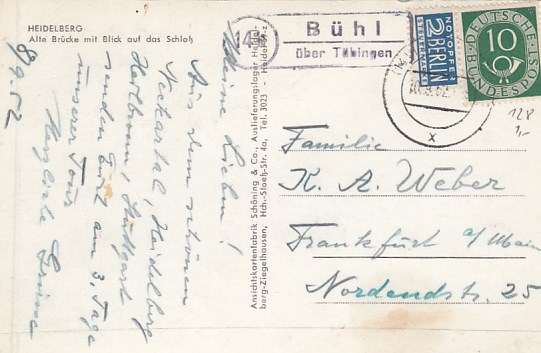 HEIDELBERG
Alte Brücke mit Blick auf das Schloß
8.9.52
Meine Lieben!
Aus dem schönen
Neckartal, Heidelberg
Heilbronn, Stuttgart
senden Euch am 3. Tage
unserer Tour
Herzliche Grüsse
Ansichtskartenfabrik Schöning & Co., Auslieferungslager Heidel-
berg-Ziegelhausen, Hch.-Stoeß-Str. 4a, Tel. 3023 - Heidelberg
14b
Bühl
über Tübingen
NOTOPFER
2 BERLIN
STEUERMARKE
DEUTSCHE
BUNDESPOST
10
128
1,-
Familie
K. A. Weber
Frankfurt a/Main
Nordendstr. 25